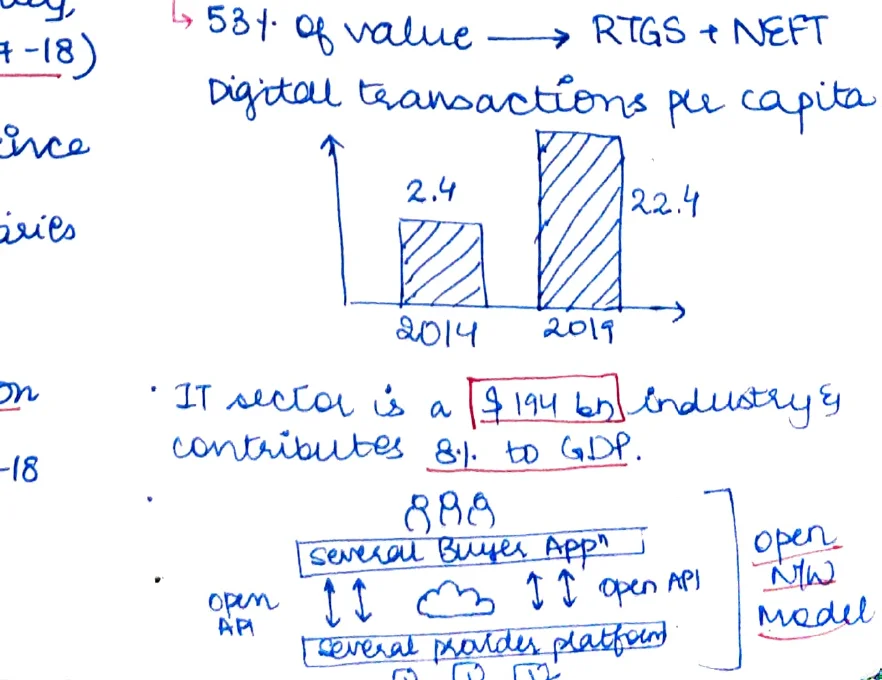 7-18)
53% of value → RTGS + NEFT
Digital transactions per capita
2.4
22.4
2014 2019
· IT sector is a $194 bn industry &
contributes 8% to GDP.
-18
several Buyer Appⁿ
open API
open API
several provider platform
open
N/W
Model